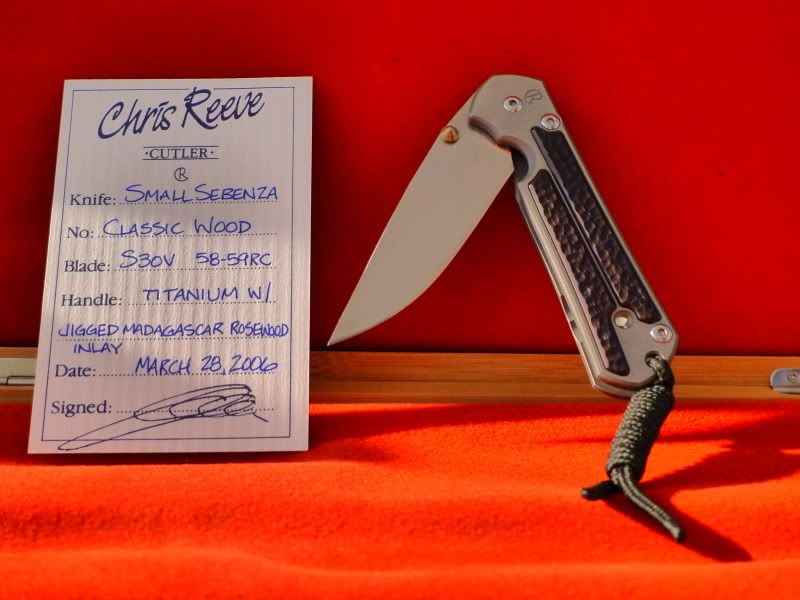 Chris Reeve
·CUTLER·
R
Knife: SMALL SEBENZA
No: CLASSIC WOOD
Blade: S30V 58-59RC
Handle: TITANIUM W/
JIGGED MADAGASCAR ROSEWOOD
INLAY
Date: MARCH 28, 2006
Signed: